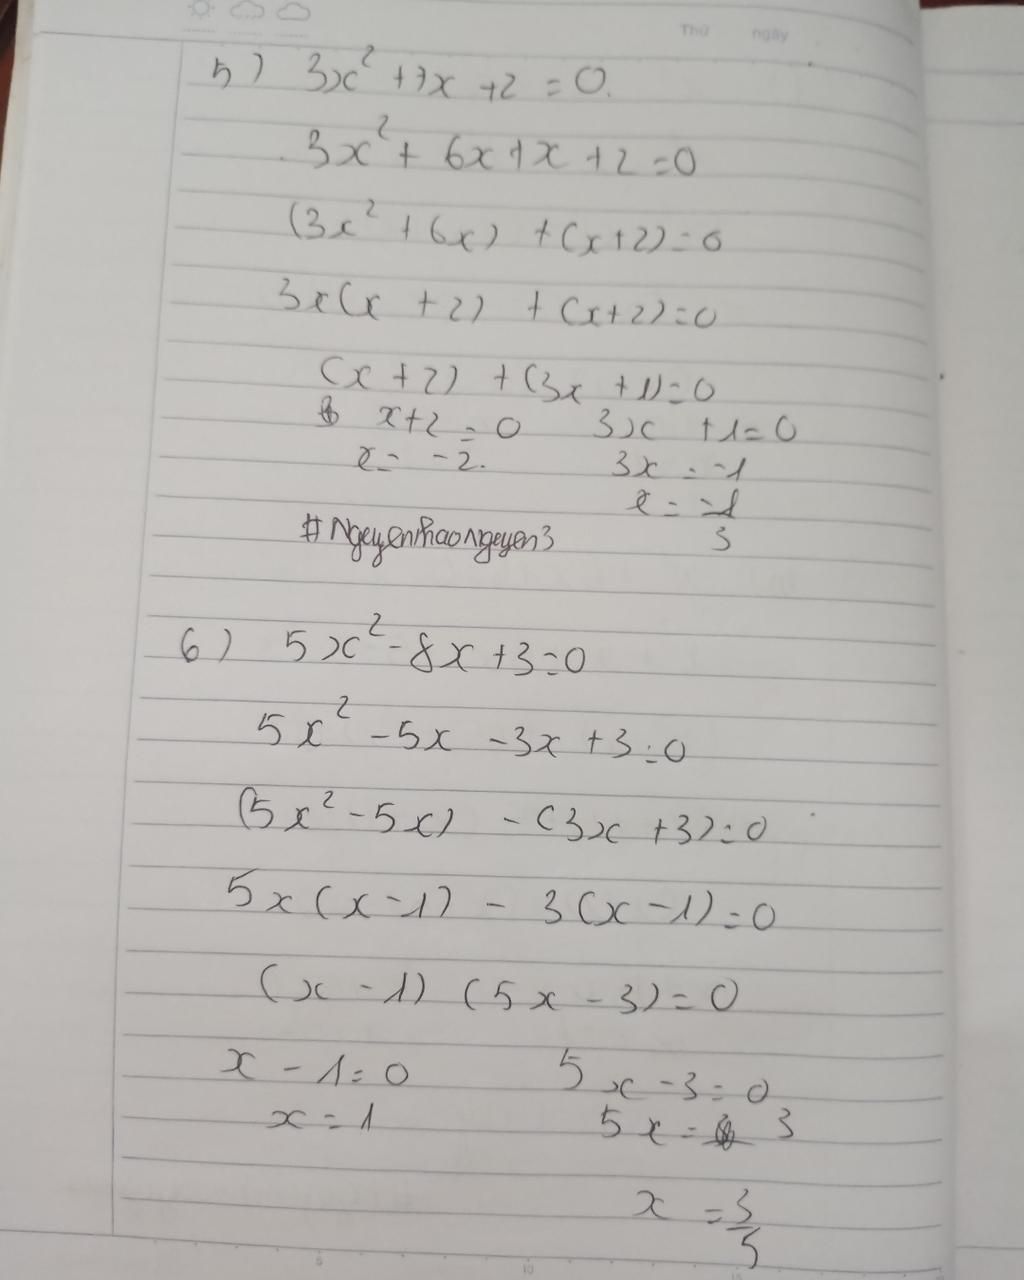 Thứ ngày
5) 3x² + 7x + 2 = 0.
3x² + 6x + x + 2 = 0
(3x² + 6x) + (x + 2) = 0
3x(x + 2) + (x + 2) = 0
(x + 2) + (3x + 1) = 0
x + 2 = 0 3x + 1 = 0
x = -2. 3x = -1
x = -1/3
6) 5x² - 8x + 3 = 0
5x² - 5x - 3x + 3 = 0
(5x² - 5x) - (3x + 3) = 0
5x(x - 1) - 3(x - 1) = 0
(x - 1) (5x - 3) = 0
x - 1 = 0 5x - 3 = 0
x = 1 5x = 3
x = 3/5
5 10 15